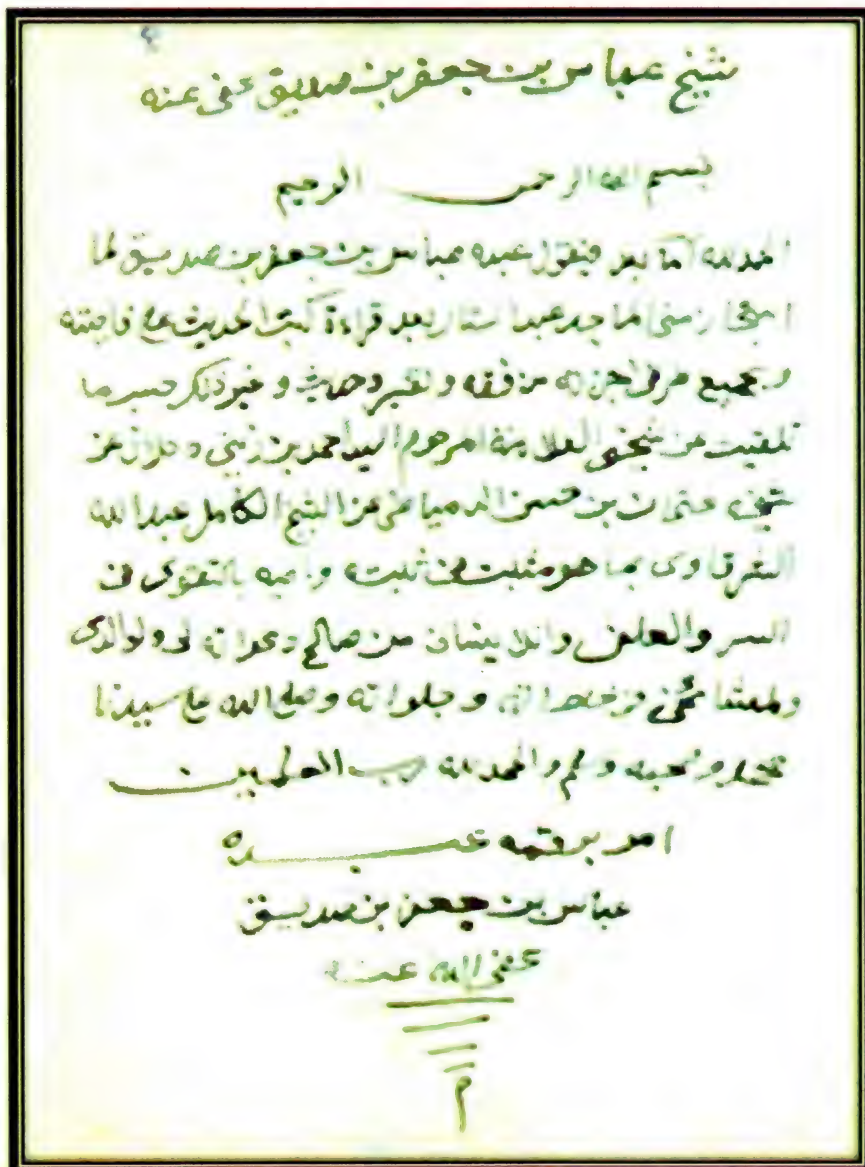 شيخ عباس بن جعفر بن صديق عفى عنه
بسم الله الرحمن الرحيم
الحمد لله أما بعد فيقول عبده عباس بن جعفر بن صديق لما
بعد قراءة كتب الحديث على
وبجميع من فقه وتفسير وحديث وغير ذلك حسبما
تلقيت عن شيخي العلامة المرحوم السيد احمد بن زيني دحلان عن
شيخه عثمان بن حسن الدمياطي عن الشيخ الكامل عبد الله
الشرقاوي بما هو مثبت في ثبته بالتقوى في
السر والعلن وان لا ينسان من صالح دعواته لى ولوالدى
ولمشائخى في وجلواته وصلى الله على سيدنا
محمد وصحبه وسلم والحمد لله رب العلمين
امر برقمه عبده
عباس بن جعفر بن صديق
عفى الله عنه
م